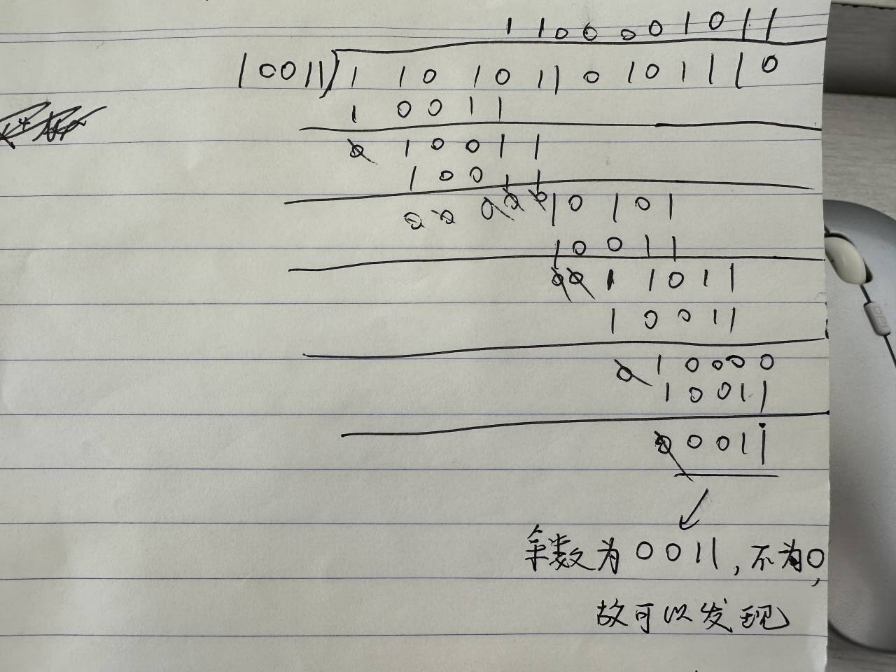 1100001011
10011)11010110101110
10011
010011
10011
0000010101
10011
0011011
10011
010000
10011
00011
余数为0011,不为0,
故可以发现